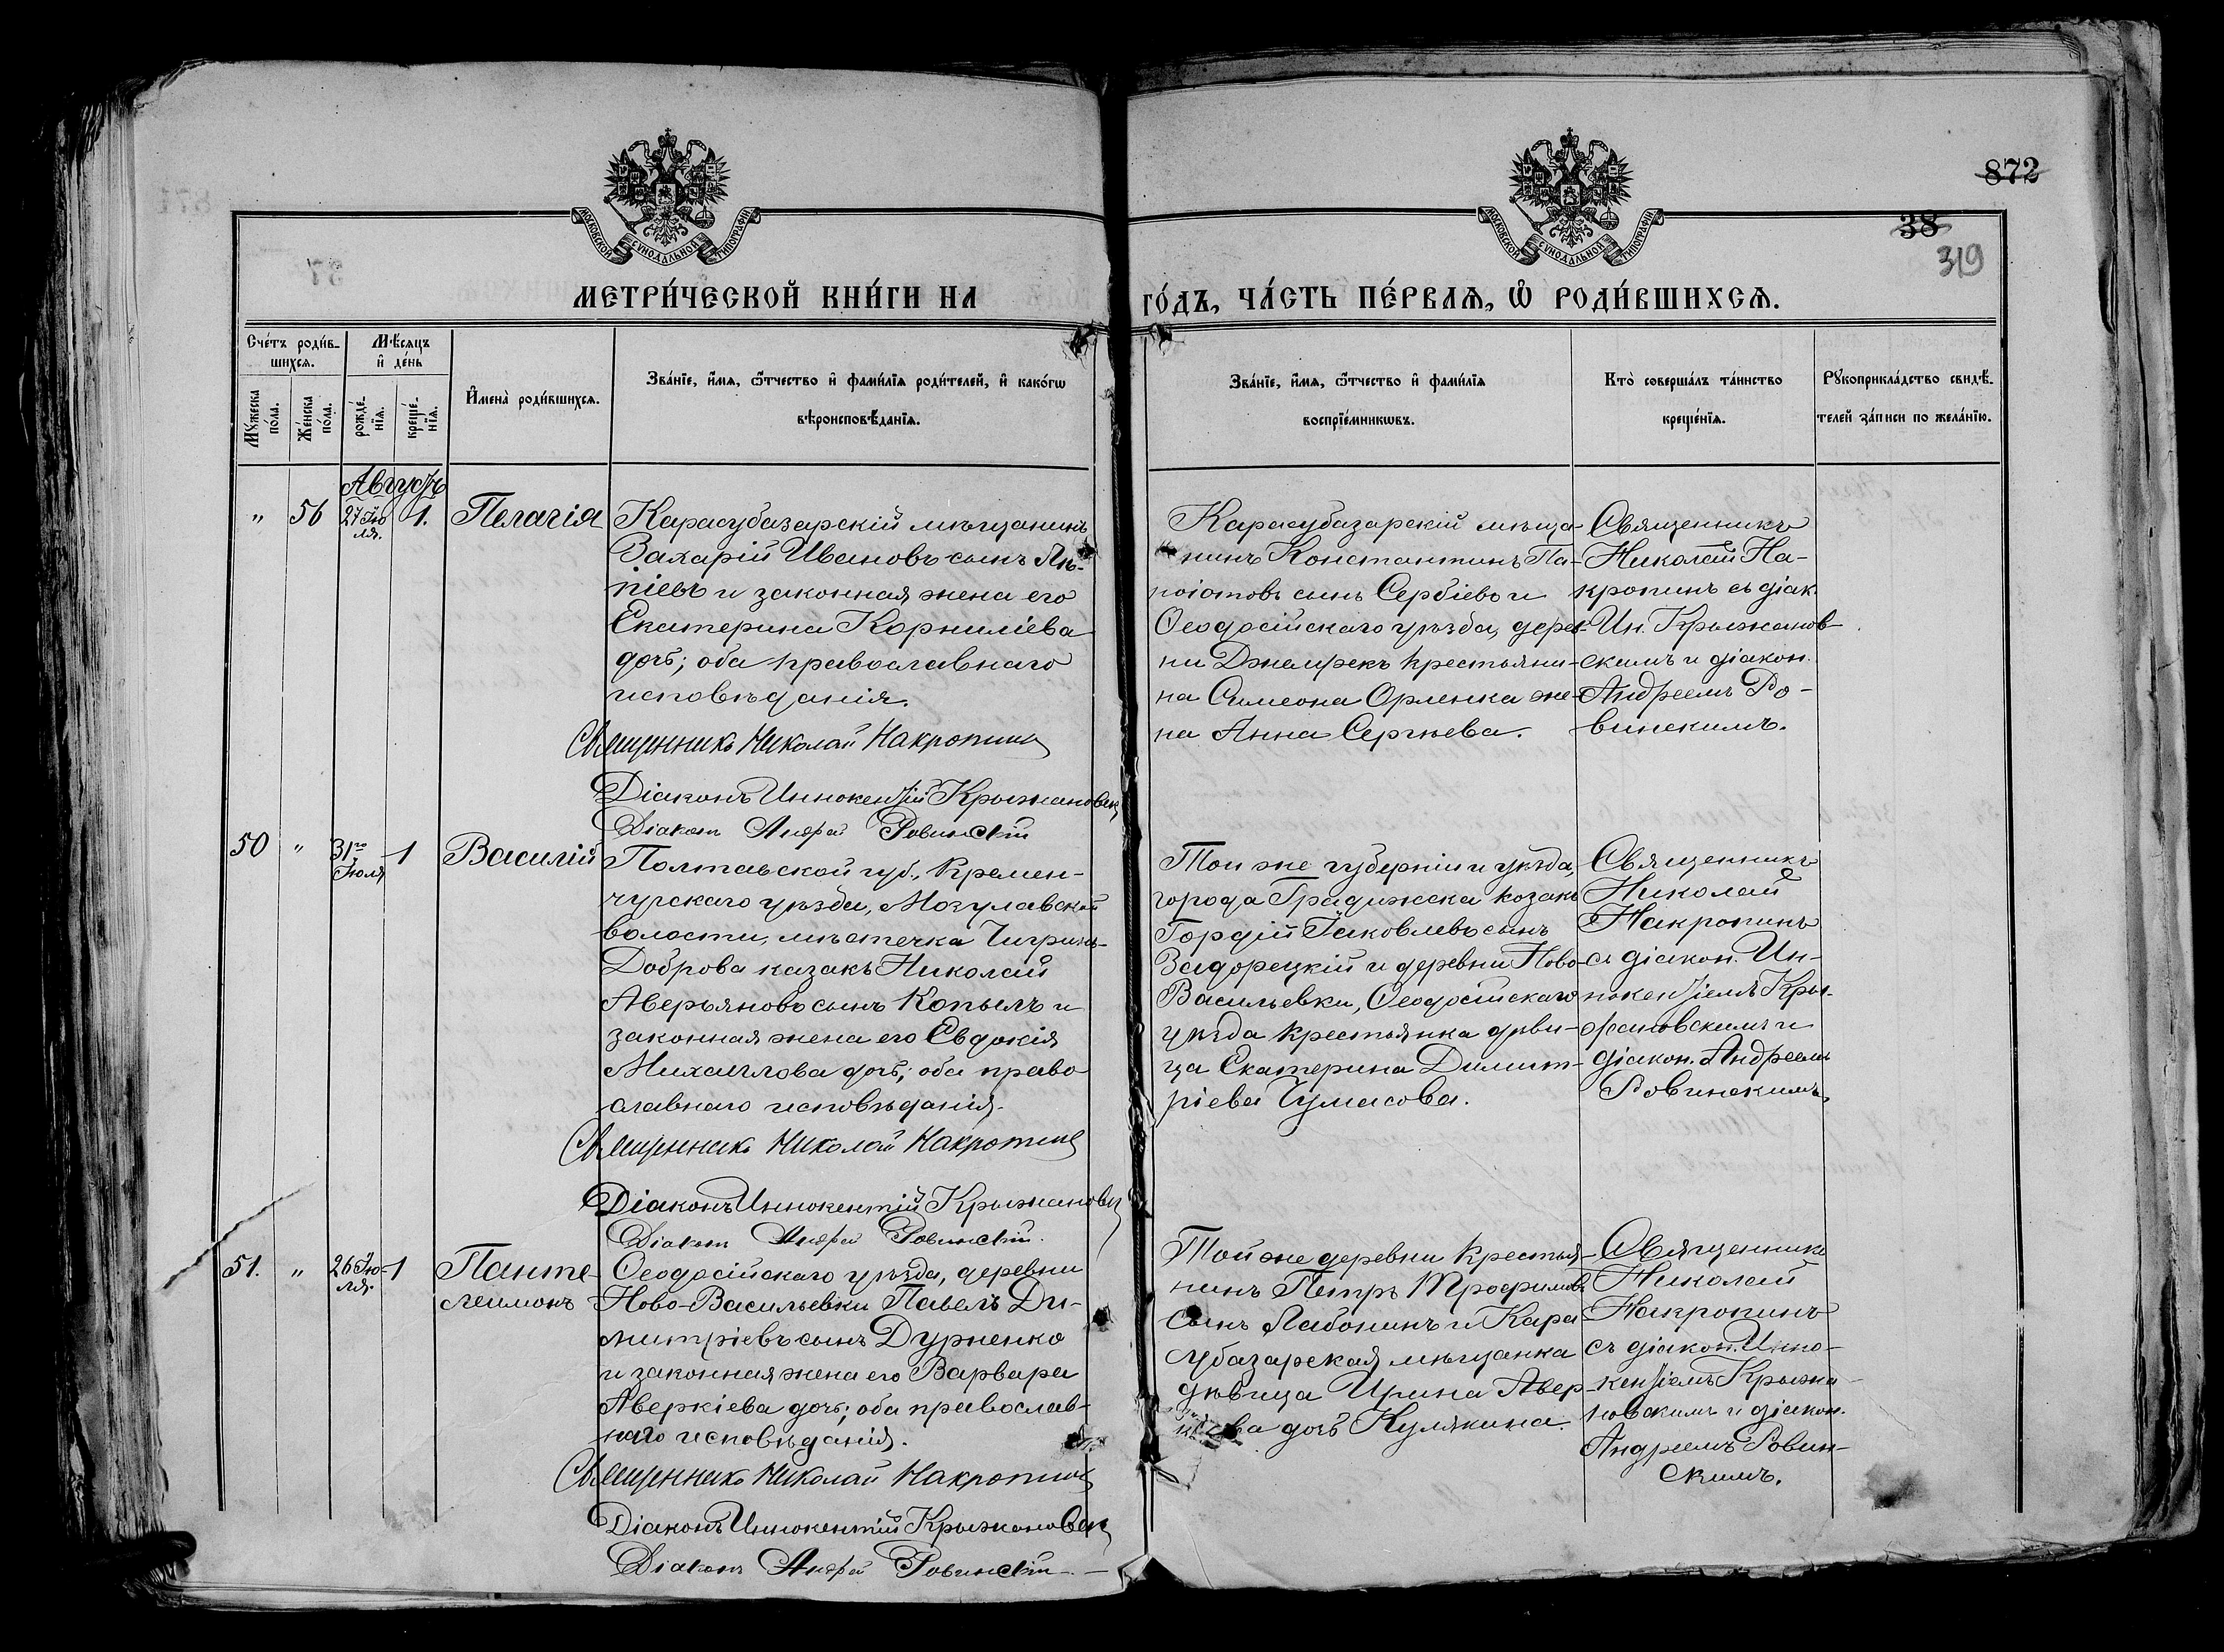 872
38
319
МОСКОВСКОЙ СѴНОДАЛЬНОЙ ТИПОГРАФІИ
МОСКОВСКОЙ СѴНОДАЛЬНОЙ ТИПОГРАФІИ
МЕТРИ́ЧЕСКОЙ КНИ́ГИ НА
ГО́ДЪ, ЧА́СТЬ ПЕ́РВАѦ, Ѽ РОДИ́ВШИХСѦ.
Сче́тъ роди́в-
шихсѧ.
Мꙋ́жеска
по́ла.
Же́нска
по́ла.
Мѣ́сѧцъ
и҆ де́нь
рожде́-
нїѧ.
креще́-
нїѧ.
И҆мена̀ роди́вшихсѧ.
Зва́нїе, и҆́мѧ, ѻ҆́тчество и҆ фами́лїѧ роди́телей, и҆ како́гѡ
вѣроисповѣ́данїѧ.
Зва́нїе, и҆́мѧ, ѻ҆́тчество и҆ фами́лїѧ
воспрїе́мникѡвъ.
Кто̀ соверша́лъ та́инство
креще́нїѧ.
Рꙋкоприкла́дство свидѣ́-
телей за́писи по жела́нїю.
Августъ
" 56 27 Ію
ля. 1. Пелагія
Карасубазарскій мѣщанинъ
Захарій Ивановъ сынъ Ль-
піевъ и законная жена его
Екатерина Корниліева
дочь; оба православнаго
исповѣданія.
Священникъ Николай Накропинъ
Діаконъ Иннокентій Крыжановск
Діаконъ Андрей Ровинскій
Карасубазарскій мѣща-
нинъ Константинъ Па-
поіотовъ сынъ Сербіевъ и
Ѳеодосійскаго уѣзда, дерев-
ни Джемрекъ крестьяни-
на Симеона Орленка же-
на Анна Сергѣева.
Священникъ
Николай На-
кропинъ съ діак.
Ин. Крыжанов-
скимъ и діакон.
Андреемъ Ро-
винскимъ.
50 " 31го
Іюля 1 Василій
Полтавской губ., Кремен-
чугскаго уѣзда,
волости, мѣстечка Чигринъ-
Доброва казакъ Николай
Аверьяновъ сынъ Копылъ и
законная жена его Евдокія
Михаилова дочь; оба право-
славнаго исповѣданія.
Священникъ Николай Накропинъ
Діаконъ Иннокентій Крыжановск
Діаконъ Андрей Ровинскій.
Той же губерніи и уѣзда,
города Градижска козакъ
Гордій Яковлевъ сынъ
Задорецкій и деревни Ново-
Васильевки, Ѳеодосійскаго
уѣзда крестьянка дѣви-
ца Екатерина Димит-
ріева Чумасова.
Священникъ
Николай
Накропинъ
съ діакон. Ин-
нокентіемъ Кры-
жановскимъ и
діакон. Андреемъ
Ровинскимъ.
51. " 26 Ію-
ля. 1 Панте-
леимонъ
Ѳеодосійскаго уѣзда, деревни
Ново-Васильевки Павелъ Ди-
митріевъ сынъ Дурненко
и законная жена его Варвара
Аверкіева дочь; оба православ-
наго исповѣданія.
Священникъ Николай Накропинъ
Діаконъ Иннокентій Крыжановск
Діаконъ Андрей Ровинскій
Той же деревни крестья-
нинъ Петръ Трофимовъ
сынъ Лабонинъ и Кара
субазарская мѣщанка
дѣвица Ирина Авер-
кіева дочь Кулякина.
Священникъ
Николай
Накропинъ
съ діакон. Инно-
кентіемъ Крыжа-
новскимъ и діакон.
Андреемъ Ровин-
скимъ.